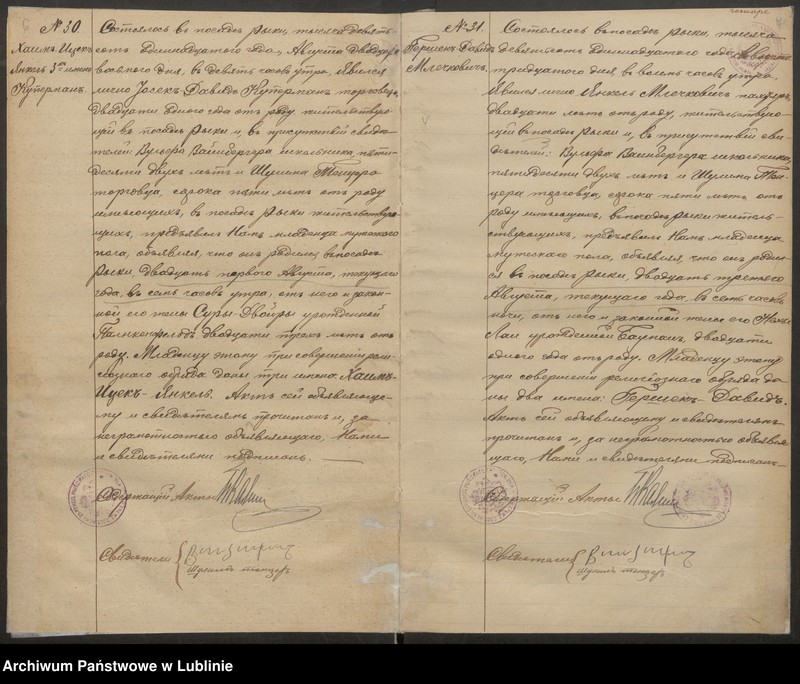 № 30.
Хаимъ-Ицекъ
Янкель 3ри имени
Кутерманъ.
Состоялось въ посадѣ Рыки, тысяча девять-
сотъ одиннадцатаго года, Августа двадцать
восьмого дня, въ девять часовъ утра. Явился
лично Іосекъ Давидъ Кутерманъ торговецъ,
двадцати одного года отъ роду жительствую-
щій въ посадѣ Рыки и, въ присутствіи свидѣ-
телей: Вульфа Вайнбергера школьника, пяти-
десяти двухъ лѣтъ и Шулима Танцера
торговца, сорока пяти лѣтъ отъ роду
имѣющихъ, въ посадѣ Рыки жительствую-
щихъ, предъявилъ Намъ младенца мужского
пола, объявляя, что онъ родился въ посадѣ
Рыки, двадцать перваго Августа, текущаго
года, въ семь часовъ утра, отъ него и закон-
ной его жены Суры-Двойры урожденной
двадцати трехъ лѣтъ отъ
роду. Младенцу этому при совершеніи рели-
гіознаго обряда даны три имена: Хаимъ-
Ицекъ-Янкель. Актъ сей объявляюще-
му и свидѣтелямъ прочитанъ и, за
неграмотностью объявляющаго, Нами
и свидѣтелями подписанъ.
Содержащій Акты
Свидѣтели
Шулимъ танцеръ
№ 31.
Гершекъ-Давидъ
Млечковичъ.
Состоялось въ посадѣ Рыки, тысяча
девятьсотъ одиннадцатаго года, Августа
тридцатаго дня, въ восемь часовъ утра.
Явился лично Янкель Млечковичъ
двадцати лѣтъ отъ роду, жительствую-
щій въ посадѣ Рыки и, въ присутствіи сви-
дѣтелей: Вульфа Вайнбергера школьника,
пятидесяти двухъ лѣтъ и Шулима Тан-
цера торговца, сорока пяти лѣтъ отъ
роду имѣющихъ, въ посадѣ Рыки житель-
ствующихъ, предъявилъ Намъ младенца
мужского пола, объявляя, что онъ родил-
ся въ посадѣ Рыки, двадцать третьяго
Августа, текущаго года, въ семь часовъ
ночи, отъ него и законной жены его
Лаи урожденной двадцати
одного года отъ роду. Младенцу этому
при совершеніи религіознаго обряда да-
ны два имени: Гершекъ-Давидъ.
Актъ сей объявляющему и свидѣтелямъ
прочитанъ и, за неграмотностью объявля-
ющаго, Нами и свидѣтелями подписанъ.
Содержащій Акты
Свидѣтели
Шулимъ танцеръ
Archiwum Państwowe w Lublinie